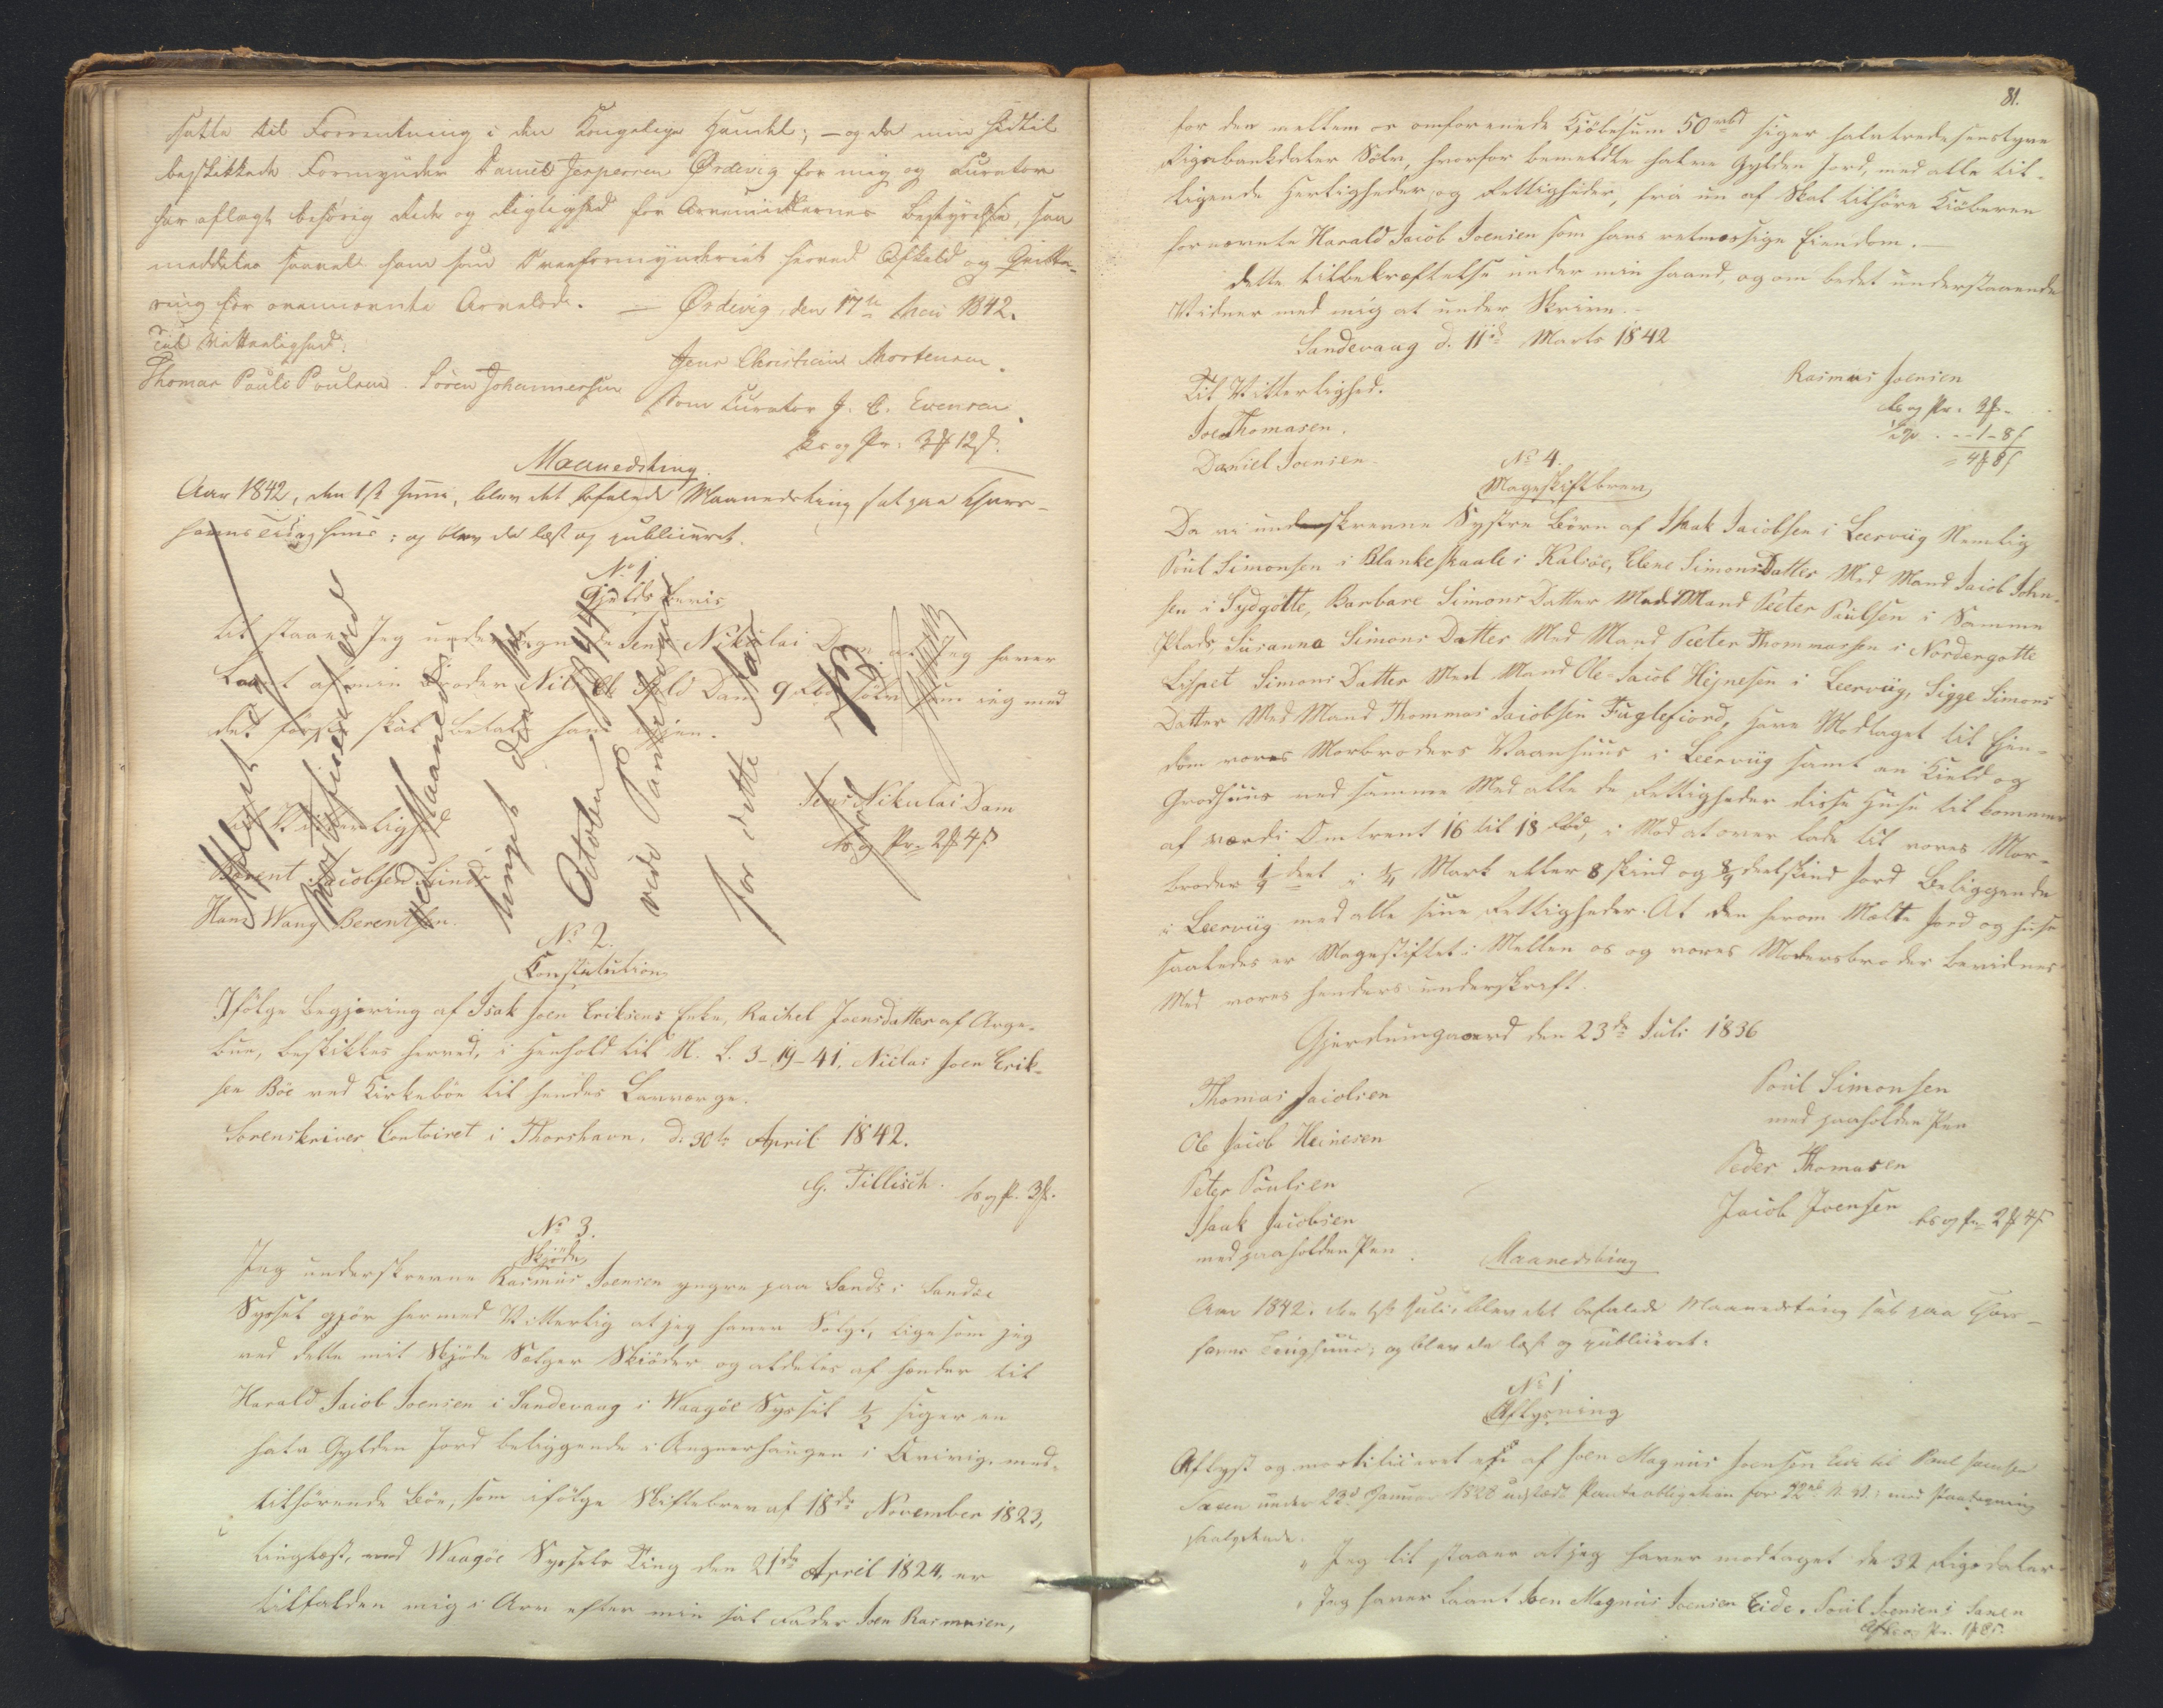 satte til Forrentning i den Kongelige Handel; — og da min hidtil
beskikkede Formynder Daniel Jespersen Ørdevig for mig og Curator
har aflagt behørig Rede og Rigtighed for Arvemidlernes Bestyrelse, saa
meddeles saavel ham som Overformynderiet herved Afkald og Qvitte-
ring for ovennævnte Arvelod. — Ørdevig, den 17de Mai 1842.
Til Vitterlighed:
Jens Christian Mortensen.
Thomas Pauli Poulsen. Sören Johannessen
Som Curator J. C. Evensen.
Maanedsting.
Aar 1842, den 1ste Juni, blev det befalede Maanedsting sat paa Thors-
havns Tinghuus; og blev da læst og publiceret.
No 1
Gjelds beviis
til staaer Jeg under tegnede Jens Nikolai Dam at jeg haver
Laant af min Broder Niels Dam 9 Rbd Sölv som jeg med
det förste skal betale ham igjen.
Jens Nikulai Dam
Til Vitterlighed
Berent Jacobsen Lindi
Hans Wang Berentsen.
Aflyst og
mortificeret ved
ved Maaneds
tinget den
October 1844
vide Pante
for dette
No 2.
Constitution
Ifölge Begjæring af Isak Joen Eriksens Enke, Rachel Joensdatter af Arge-
bue, beskikkes herved, i Henhold til N. L. 3-19-41, Niclas Joen Erik-
sen Böe ved Kirkeböe til hendes Laugværge.
Sorenskriver Contoiret i Thorshavn, d. 30te April 1842.
G. Tillisch.
No 3.
Skjöde
Jeg underskrevne Rasmus Joensen yngre paa Sand i Sandöe
Syssel gjör hermed Vitterlig at jeg haver Solgt, ligesom jeg
ved dette mit Skjöde Sælger Skiöder og afdeles af hænder til
Harald Jacob Joensen i Sandevaag i Waagöe Syssel ½ siger en
halv Gylden Jord beliggende i Angnerhaugen i Qvivig, med-
tilhörende Böe, som ifölge Skiftebrev af 18de November 1823,
tinglæst, ved Waagöe Syssels Ting den 21de April 1824, er
tilfalden mig i Arv efter min sal. Fader Joen Rasmusen,
81.
for den mellem os omforenede Kjöbesum 50 rbd siger halvtredsenstyve
Rigsbankdaler Sölv, hvorfor bemeldte halve Gylden Jord, med alle til-
ligende Herligheder og Rettigheder, fra nu af skal tilhöre Kiöberen
fornævnte Harald Jacob Joensen som hans retmæssige Eiendom.
Dette tilbekræftelse under min Haand, og om bedet understaaende
Vidner med mig at under Skrive.
Sandevaag d. 11te Marts 1842
Rasmus Joensen
Til Vitterlighed.
Joen Thomasen.
Daniel Joensen.
No 4.
Mageskiftbrev
Da vi underskrevne Systre Börn af Isak Jacobsen i Leervüg Nemlig
Poul Simonsen i Blankeskaale i Kalsöe, Elene Simons Datter Med Mand Jacob John-
sen i Sydgötte, Barbare Simons Datter Med Mand Peeter Paulsen i Samme
Plads, Susanna Simons Datter Med Mand Peeter Thommassen i Nordergotte
Lispet Simons Datter Med Mand Ole Jacob Hejnesen i Leervüg, Sigge Simons
Datter Med Mand Thommas Jacobsen Fuglefiord, Have Modtaget til Eien-
dom vores Morbroders Vaanhuus i Leervüg samt en Kield og
Grodhuus ved samme Med alle de Rettigheder disse Huse til kommer
af værdi Omtrent 16 til 18 Rbd, i Mod at over lade til vores Mor-
broder 1/9 deel i ¼ Mark eller 8 skind og 8/9 deelskind Jord Beliggende
i Leervüg med alle sine Rettigheder. At den herom Mælte Jord og Huse
saaledes er Mageskiftet i Mellem os og vores Modersbroder bevidnes
Med vores henders underskrift.
Gjerdumgaard den 23de Juli 1836
Thomas Jacobsen
Poul Simonsen
med paaholden Pen
Ole Jacob Heinesen
Peder Thomasen
Peter Poulsen
Jacob Joensen
Isaak Jacobsen
med paaholden Pen.
Maanedsting
Aar 1842, den 1ste Juli blev det befalede Maanedsting sat paa Thors-
havns Tinghuus; og blev da læst og publiceret:
No 1
Aflysning
Aflyst og mortificeret en af Joen Magnus Joensen Eide til Poul Joensen
Saxen under 23d Januar 1828 udstædt Panteobligation for 32 rd med Paategning
saalydende.
„ Jeg til staaer at jeg haver modtaget de 32 Rigsdaler
„ Jeg haver Laant Joen Magnus Joensen Eide. Poul Joensen i Saxen